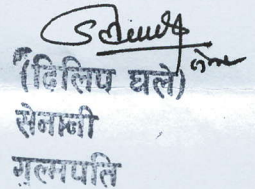 (दिलिप घले)
सेनानी
गुल्मपति